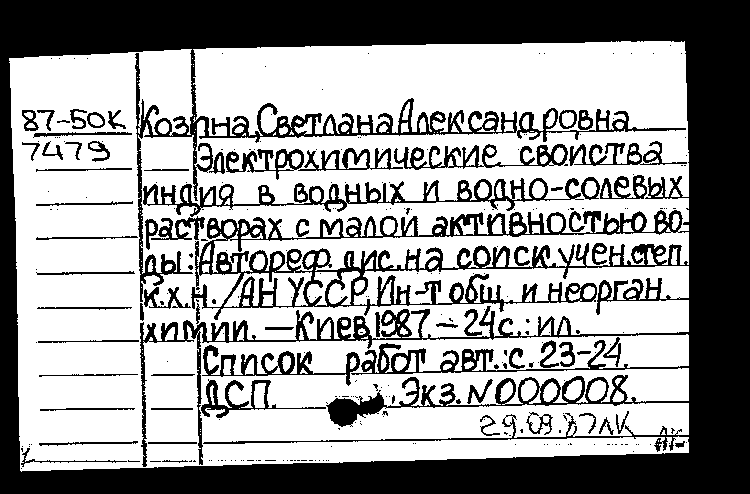 87-50К Козина, Светлана Александровна.
7479 Электрохимические свойства
индия в водных и водно-солевых
растворах с малой активностью во-
ды: Автореф. дис. на соиск. учен. степ.
к.х.н. / АН УССР, Ин-т общ. и неорган.
химии. — Киев, 1987. — 24 с.: ил.
Список работ авт.: с. 23-24.
ДСП. Экз. N000008.
29.09.87 ЛК